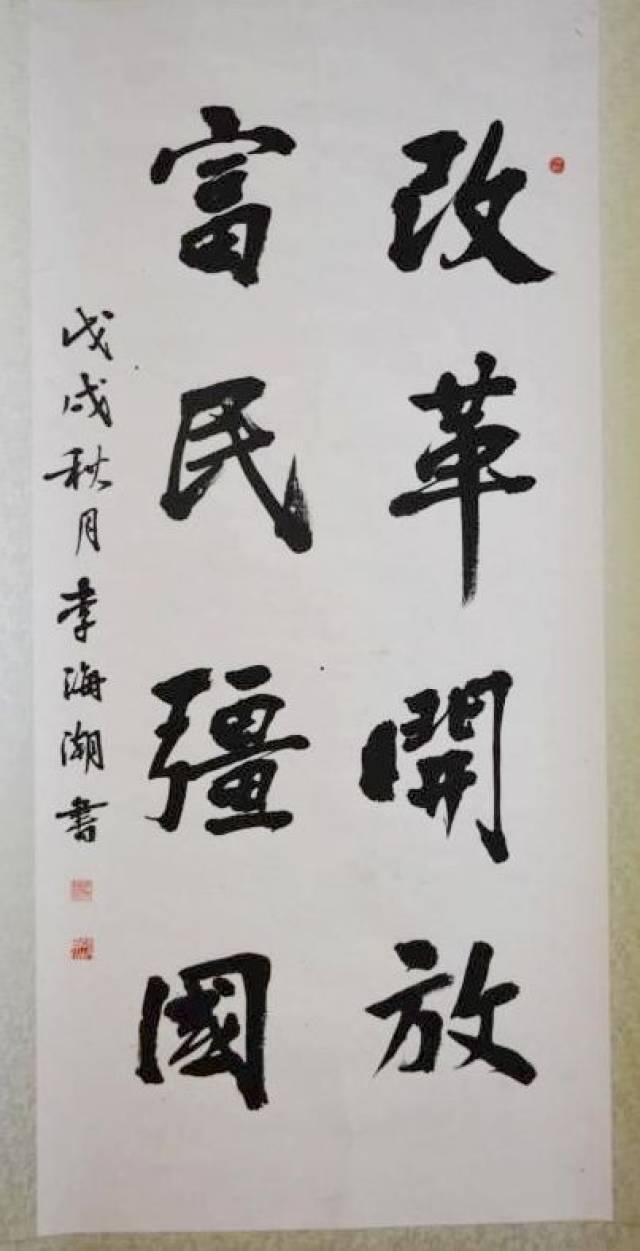 改革開放
富民彊國
戊戌秋月李海潮书